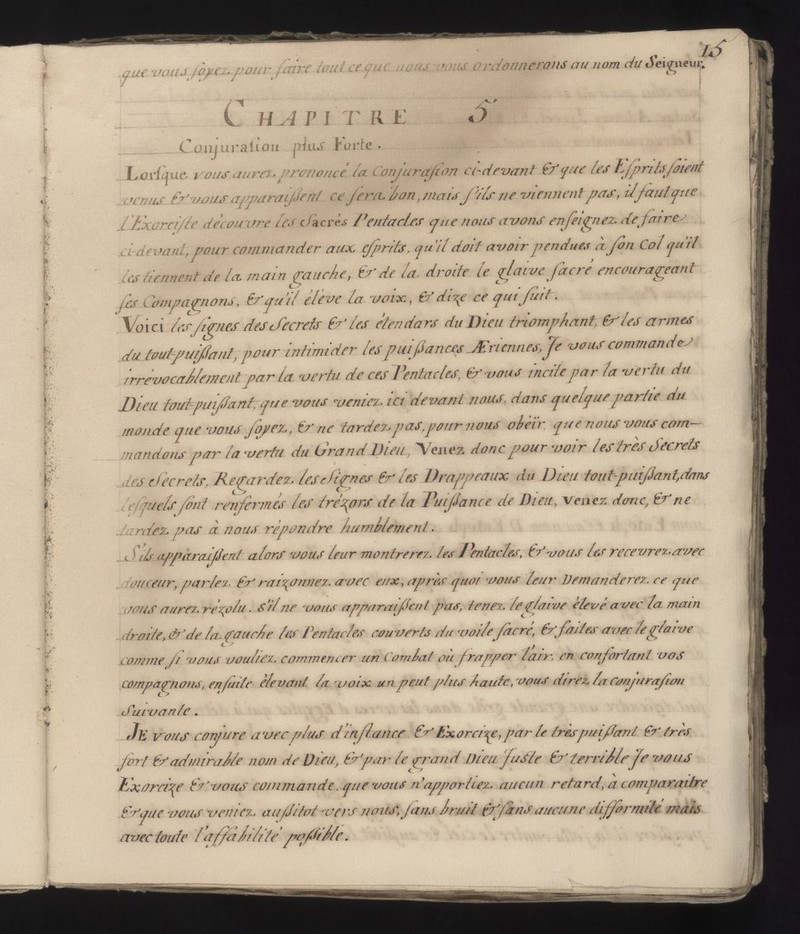 15
que vous soyez pour faire tout ce que nous vous ordonnerons au nom du Seigneur.
CHAPITRE 5
Conjuration plus Forte.
Lorsque vous aurez prononcé la Conjurasion ci-devant & que les Esprits soient
venus & vous apparaissent ce sera bon, mais s'ils ne viennent pas, il faut que
l'Exorciste découvre les Sacrés Pentacles que nous avons enseignez de faire
ci-devant, pour commander aux esprits, qu'il doit avoir pendues à son Col qu'il
les tiennent de la main gauche, & de la droite le glaive sacré encourageant
ses Compagnons, & qu'il élève la voix, & dize ce qui suit.
Voici les signes des Secrets & les étendars du Dieu triomphant, & les armes
du tout-puissant, pour intimider les puissances Æriennes, Je vous commande
irrévocablement par la vertu de ces Pentacles, & vous incite par la vertu du
Dieu tout-puissant, que vous veniez ici devant nous, dans quelque partie du
monde que vous soyez, & ne tardez pas, pour nous obéir que nous vous com-
mandons par la vertu du Grand Dieu, Venez donc pour voir les très Secrets
des Secrets, Regardez les Signes & les Drappeaux du Dieu tout-puissant, dans
lesquels sont renfermés les trézors de la Puissance de Dieu, venez donc, & ne
tardez pas à nous répondre humblement.
S'ils apparaissent alors vous leur montrerez les Pentacles, & vous les recevrez avec
douceur, parlez & raizonnez avec eux, après quoi vous leur Demanderez ce que
vous aurez rézolu. s'il ne vous apparaissent pas, tenez le glaive élevé avec la main
droite, & de la gauche les Pentacles couverts du voile sacré, & faites avec le glaive
comme si vous vouliez commencer un Combat où frapper l'air, en confortant vos
compagnons, ensuite élevant la voix un peut plus haute, vous direz la conjurasion
Suivante.
JE vous conjure avec plus d'instance & Exorcize, par le très puissant & très
fort & admirable nom de Dieu, & par le grand Dieu Juste & terrible Je vous
Exorcize & vous commande, que vous n'apportiez aucun retard, à comparaitre
& que vous veniez aussitot vers nous, sans bruit & sans aucune difformité mais
avec toute l'affabilité possible.